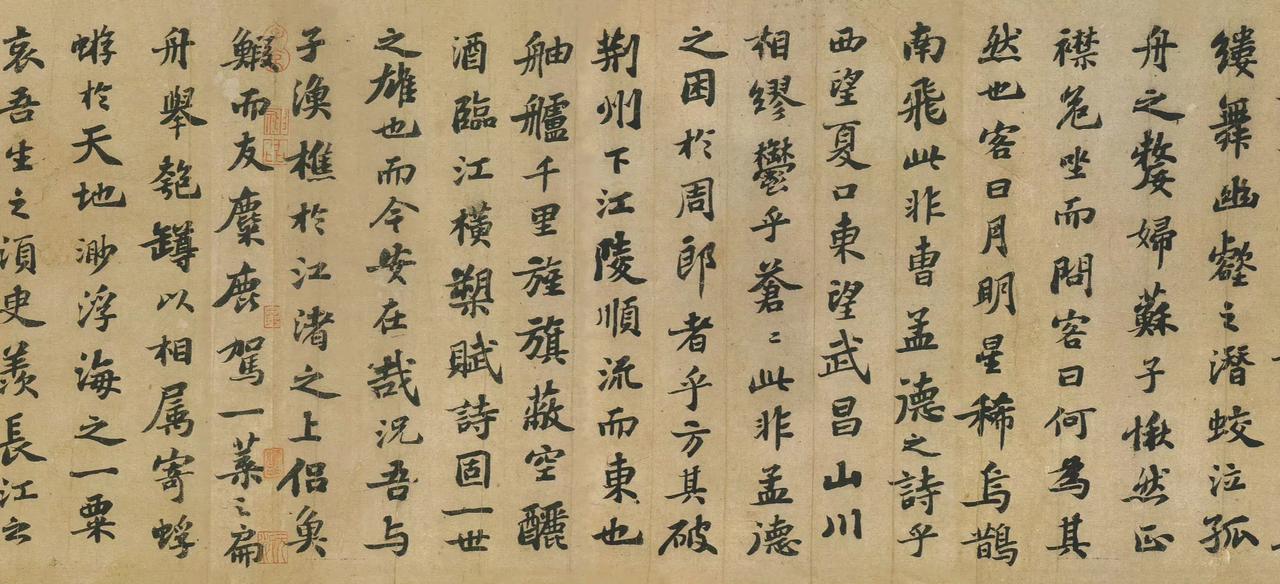 縷舞幽壑之潛蛟泣孤
舟之嫠婦蘇子愀然正
襟危坐而問客曰何為其
然也客曰月明星稀烏鵲
南飛此非曹孟德之詩乎
西望夏口東望武昌山川
相繆鬱乎蒼〻此非孟德
之困於周郎者乎方其破
荊州下江陵順流而東也
舳艫千里旌旗蔽空釃
酒臨江橫槊賦詩固一世
之雄也而今安在哉況吾与
子漁樵於江渚之上侶魚
鰕而友麋鹿駕一葉之扁
舟舉匏罇以相属寄蜉
蝣於天地渺浮海之一粟
哀吾生之須臾羨長江之